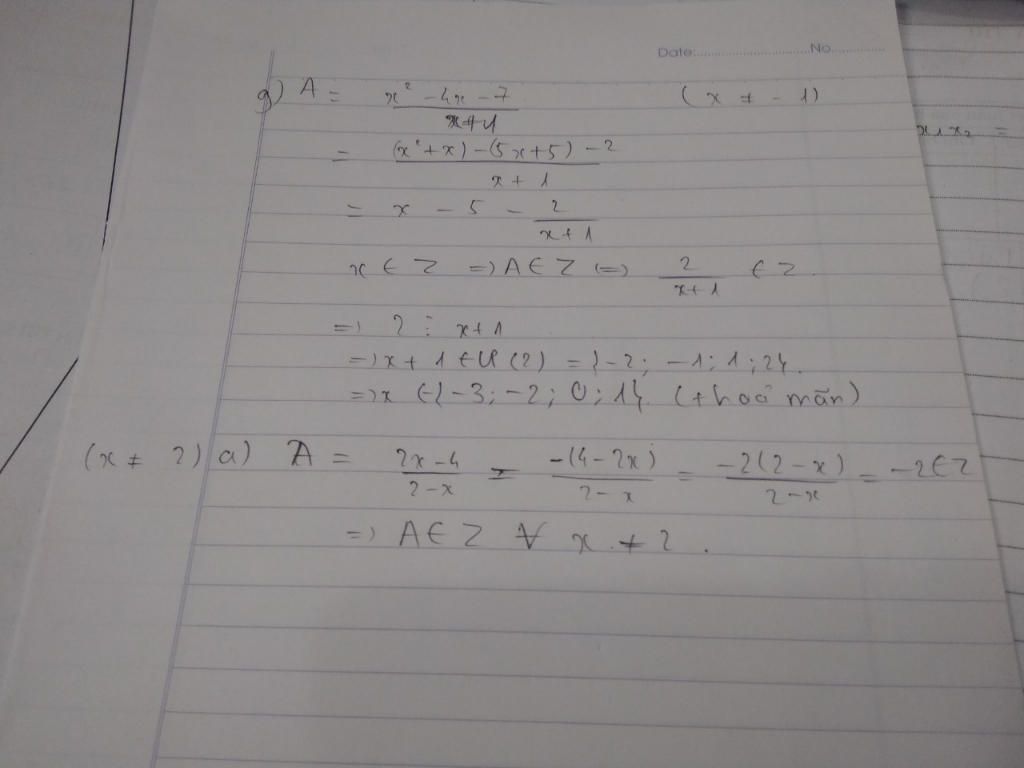 Date:.................No..........
g) A = \frac{x² - 4x - 7}{x+1} (x ≠ -1)
= \frac{(x²+x) - (5x+5) - 2}{x+1}
= x - 5 - \frac{2}{x+1}
x ∈ Z => A ∈ Z <=> \frac{2}{x+1} ∈ Z.
=> 2 ⋮ x+1
=> x + 1 ∈ Ư(2) = {-2; -1; 1; 2}.
=> x ∈ {-3; -2; 0; 1}. (thoả mãn)
(x ≠ 2) a) A = \frac{2x-4}{2-x} = \frac{-(4-2x)}{2-x} = \frac{-2(2-x)}{2-x} = -2 ∈ Z
=> A ∈ Z ∀ x ≠ 2.
x₁x₂ =